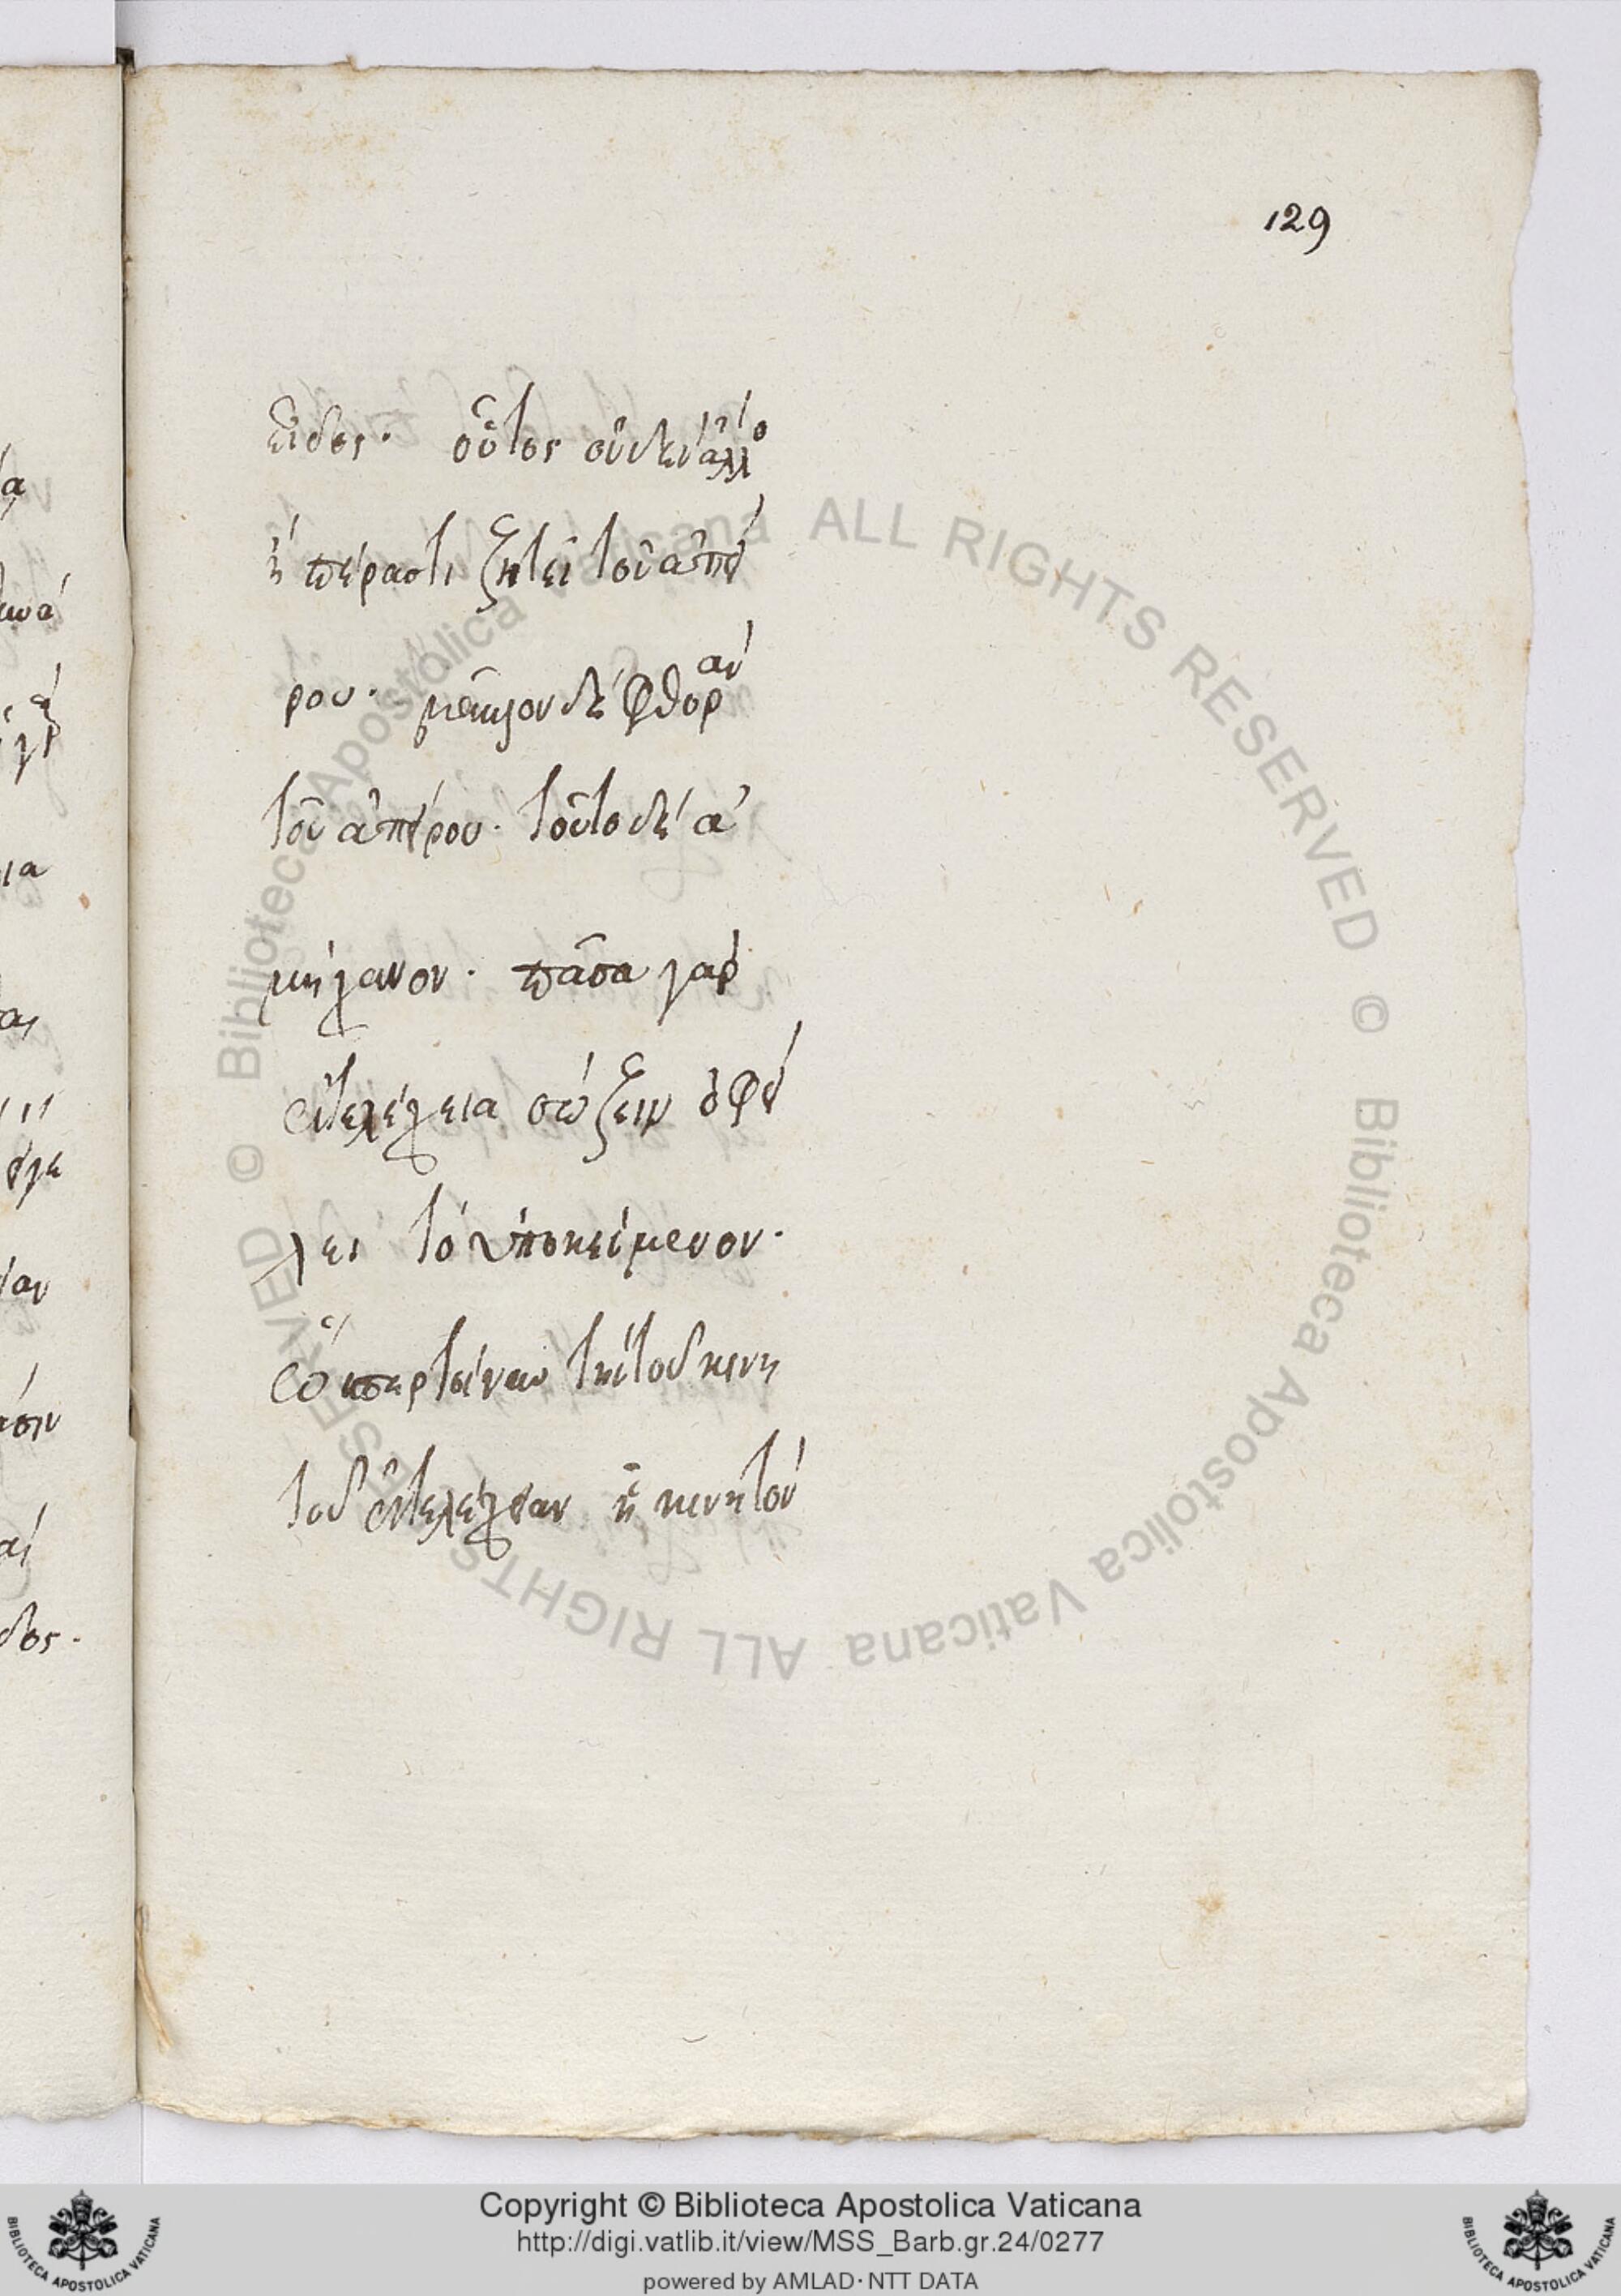 129
εἶδος. οὗτος οὐδὲν ἄλλο
ἢ πέρας τι ζητεῖ τοῦ ἀπεί
ρου. μᾶλλον δὲ φθορὰν
τοῦ ἀπείρου. τοῦτο δὲ ἀ
μήχανον. πᾶσα γὰρ
ἐντελέχεια σώζειν ὀφεί
λει τὸ ὑποκείμενον.
ὥσπερ τοίνυν τὴν τοῦ κινη
τοῦ ἐντελέχειαν ᾗ κινητὸν
Copyright © Biblioteca Apostolica Vaticana
http://digi.vatlib.it/view/MSS_Barb.gr.24/0277
powered by AMLAD·NTT DATA
BIBLIOTECA APOSTOLICA VATICANA
BIBLIOTECA APOSTOLICA VATICANA
© Biblioteca Apostolica Vaticana ALL RIGHTS RESERVED © Biblioteca Apostolica Vaticana ALL RIGHTS RESERVED